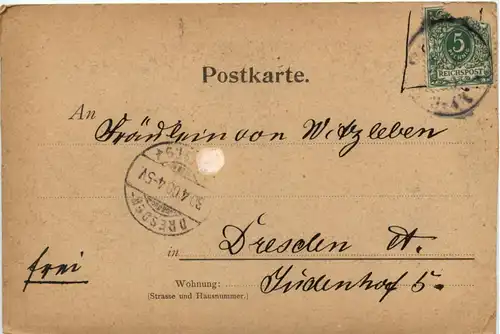 Postkarte.
5
REICHSPOST
An Fräulein von Witzleben
DRESDEN-
30.4.00.4-5V
in Dresden A.
frei
Wohnung: Jüdenhof 5.
(Strasse und Hausnummer.)